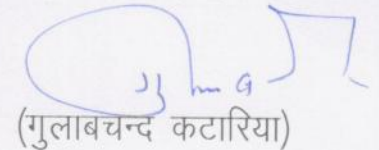 (गुलाबचन्द कटारिया)